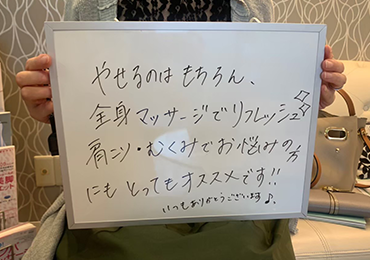 やせるのは もちろん、
全身マッサージでリフレッシュ✧✧
肩こり・むくみでお悩みの方
にも とってもオススメです!!
いつもありがとうございます♪